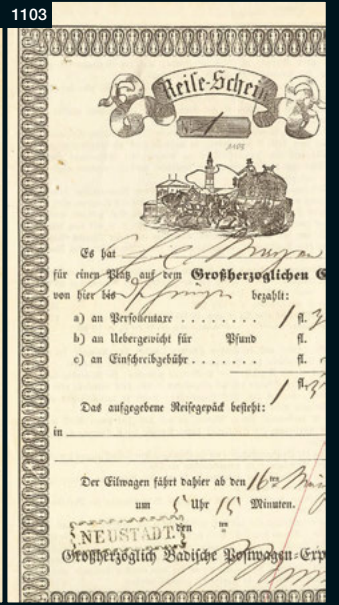 1103
Reise-Schein
No. 1
1103
Es hat
für einen Platz auf dem Großherzoglichen E
von hier bis bezahlt:
a) an Personentaxe . . . . . . . . 1 fl. 3
b) an Uebergewicht für Pfund fl.
c) an Einschreibgebühr . . . . . . . fl.
1 fl. 3
Das aufgegebene Reisegepäck besteht:
in
Der Eilwagen fährt dahier ab den 16ten
um 5 Uhr 15 Minuten.
NEUSTADT. den ten
Großherzoglich Badische Postwagen-Exp